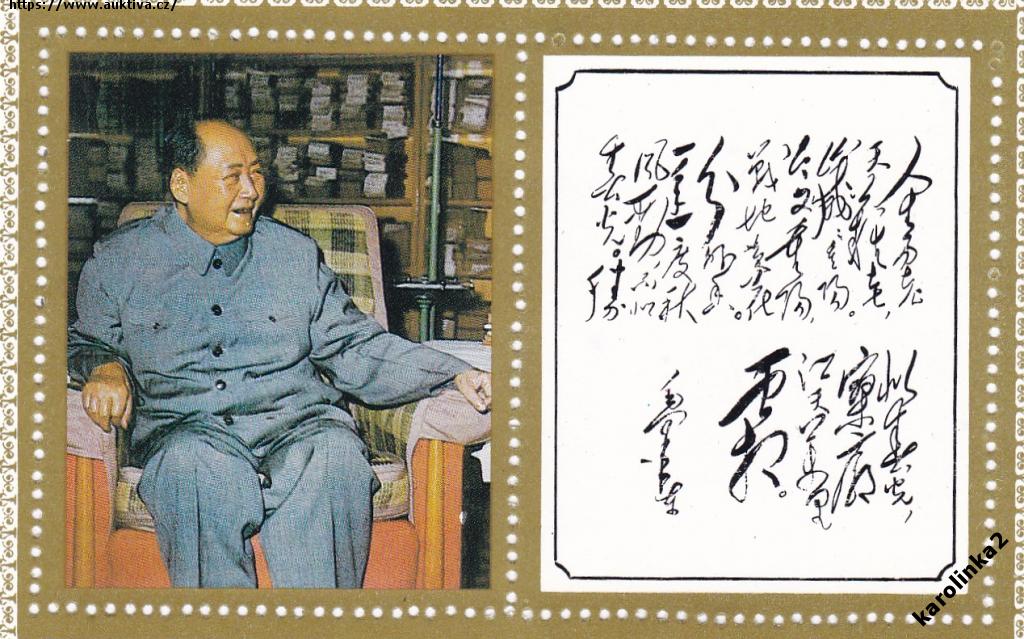 https://www.auktiva.cz/
人生易老
天難老,
歲歲重陽。
今又重陽,
戰地黃花
分外香。
一年一度秋
風勁,不似
春光。勝
似春光,
寥廓
江天萬里
霜。
毛澤東
karolinka2